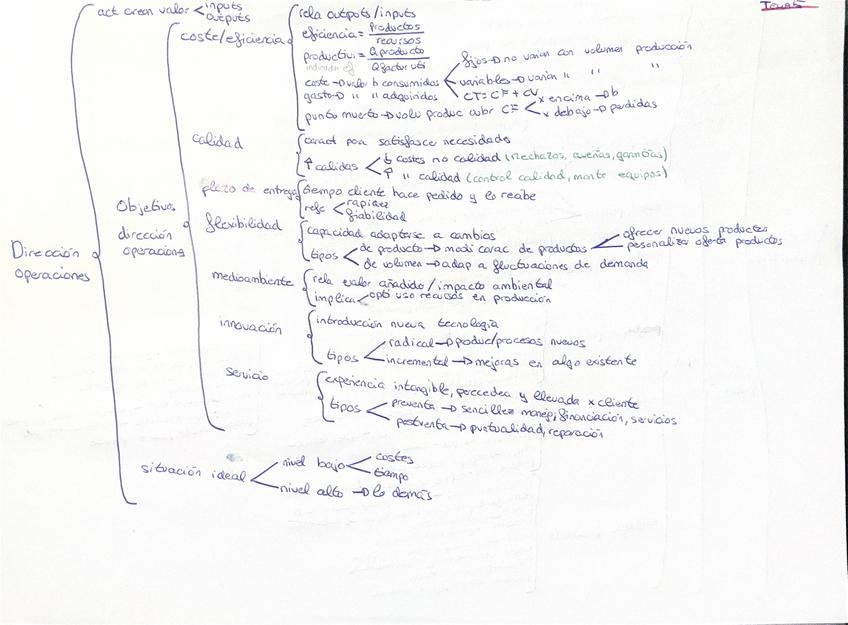 Tema 5
act crean valor < inputs
outputs
Dirección operaciones
Objetivos dirección operaciones
coste/eficiencia
rela outpots/inputs
eficiencia = Productos / recursos
productivi = Q producto / Q factor uti
coste → valor b consumidos
fijos → no varian con volumen producción
variables → varian " " "
gasto → " " adquiridos
CT = CF + CV
punto muerto → volu produc cubr CF
x encima → b
x debajo → perdidas
calidad
caract para satisfacer necesidades
↑ calidas
↓ costes no calidad (rechazos, averías, garantías)
↑ " calidad (control calidad, mante equipos)
plazo de entrega
tiempo cliente hace pedido y lo recibe
refe < rapidez
fiabilidad
flexibilidad
capacidad adaptarse a cambios
tipos
de producto → modi carac de productos
ofrecer nuevos productos
personalizar oferta productos
de volumen → adap a fluctuaciones de demanda
medioambiente
rela valor añadido / impacto ambiental
implica < opti uso recursos en producción
innovación
introducción nueva tecnología
tipos
radical → produc/procesos nuevos
incremental → mejoras en algo existente
servicio
experiencia intangible, percedera y llevada x cliente
tipos
preventa → sencillez manej, financiación, servicios
postventa → puntualidad, reparación
situación ideal
nivel bajo < costes
tiempo
nivel alto → lo demás